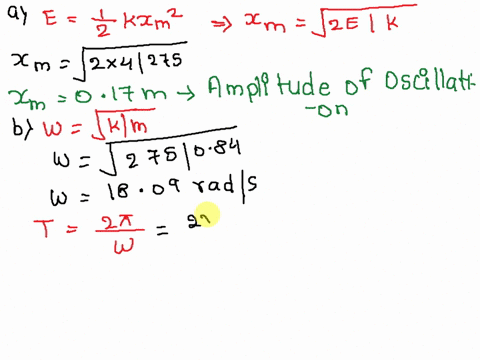 a) E = 1/2 k xm² ⇒ xm = √2E | k
xm = √2×4 | 275
xm = 0.17m → Amplitude of Oscillati
-on
b) W = √k | m
W = √275 | 0.84
W = 18.09 rad | s
T = 2π/W = 2